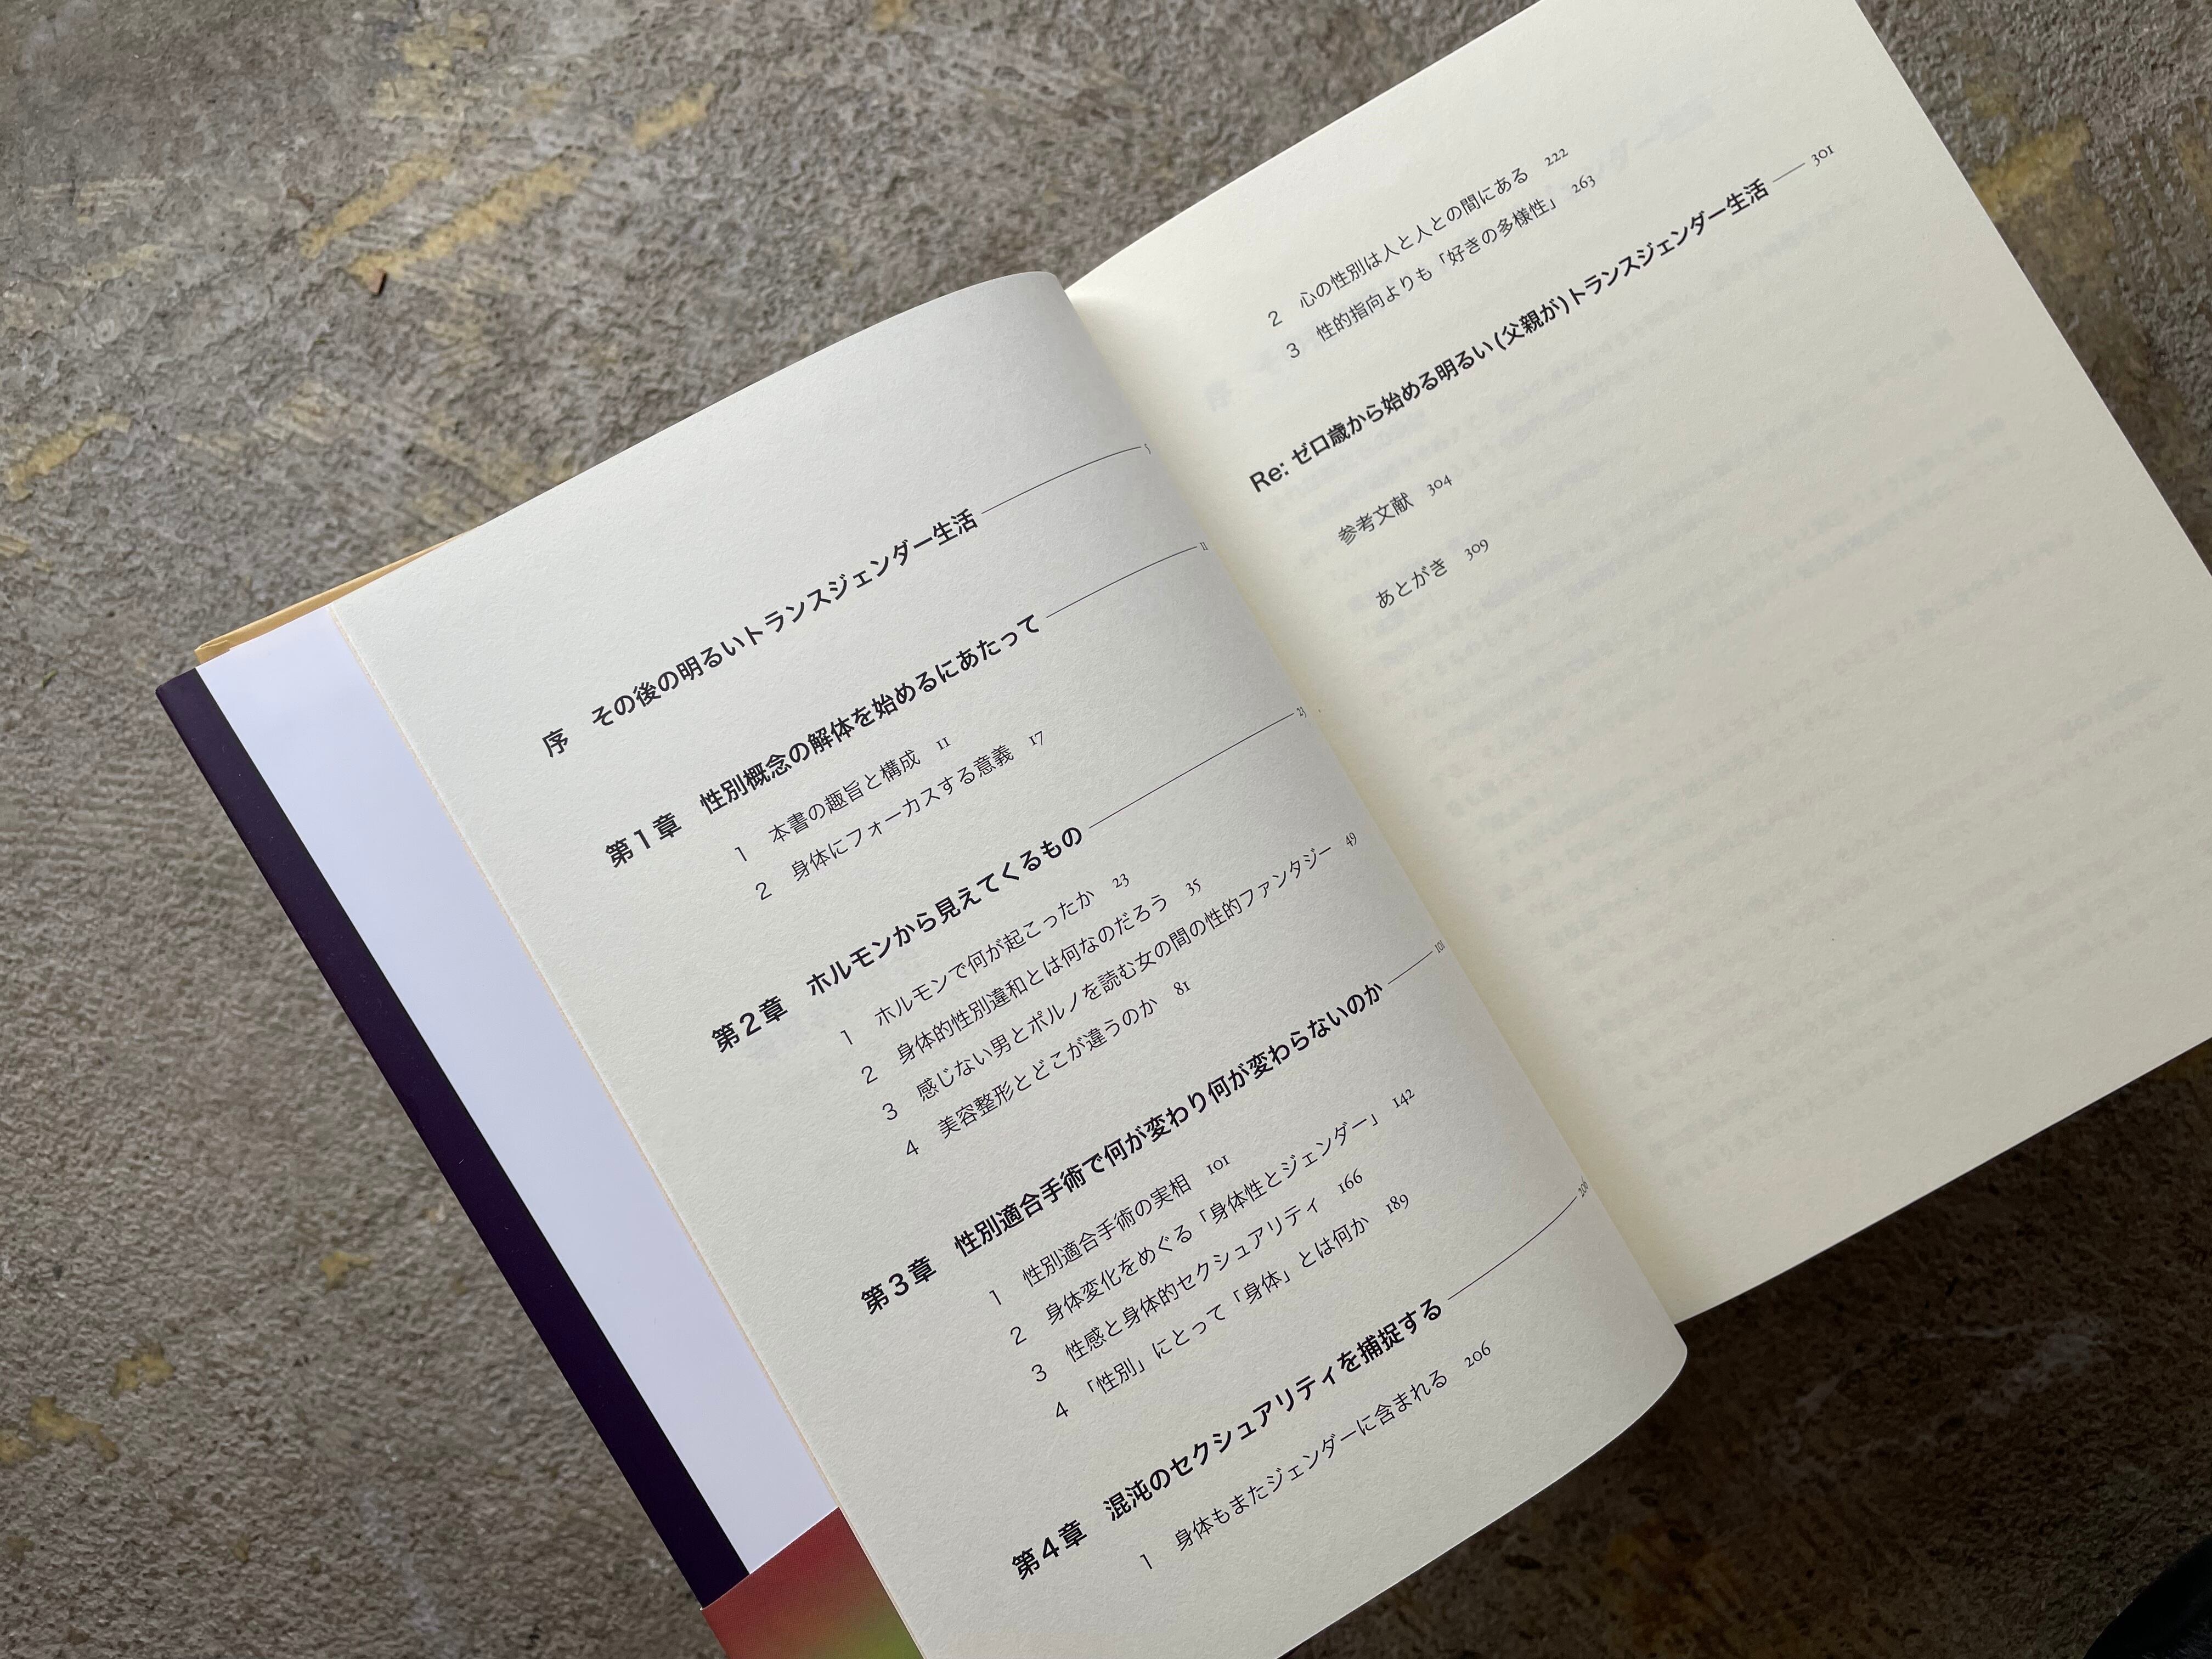 序　その後の明るいトランスジェンダー生活 5
第1章　性別概念の解体を始めるにあたって 11
1　本書の趣旨と構成　11
2　身体にフォーカスする意義　17
第2章　ホルモンから見えてくるもの 23
1　ホルモンで何が起こったか　23
2　身体的性別違和とは何なのだろう　35
3　感じない男とポルノを読む女の間の性的ファンタジー　49
4　美容整形とどこが違うのか　81
第3章　性別適合手術で何が変わり何が変わらないのか 101
1　性別適合手術の実相　101
2　身体変化をめぐる「身体性とジェンダー」　142
3　性感と身体的セクシュアリティ　166
4　「性別」にとって「身体」とは何か　189
第4章　混沌のセクシュアリティを捕捉する 206
1　身体もまたジェンダーに含まれる　206
2　心の性別は人と人との間にある　222
3　性的指向よりも「好きの多様性」　263
Re: ゼロ歳から始める明るい(父親が)トランスジェンダー生活 301
参考文献　304
あとがき　309